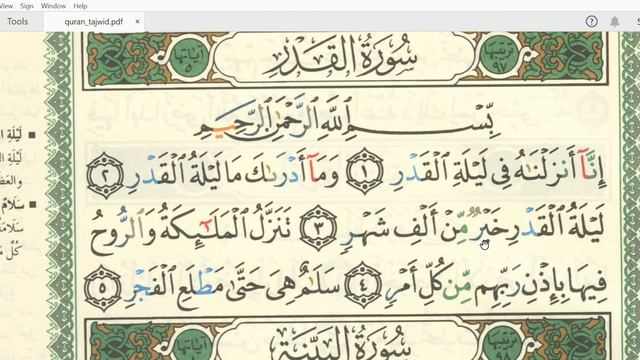 View Sign Window Help
Tools quran_tajwid.pdf ×
سُورَةُ الْقَدْرِ
آيَاتُهَا ٥ تَرْتِيبُهَا ٩٧
بِسْمِ اللَّهِ الرَّحْمَٰنِ الرَّحِيمِ
إِنَّا أَنزَلْنَاهُ فِي لَيْلَةِ الْقَدْرِ ١ وَمَا أَدْرَاكَ مَا لَيْلَةُ الْقَدْرِ ٢
لَيْلَةُ الْقَدْرِ خَيْرٌ مِّنْ أَلْفِ شَهْرٍ ٣ تَنَزَّلُ الْمَلَائِكَةُ وَالرُّوحُ
فِيهَا بِإِذْنِ رَبِّهِم مِّن كُلِّ أَمْرٍ ٤ سَلَامٌ هِيَ حَتَّىٰ مَطْلَعِ الْفَجْرِ ٥
سُورَةُ الْبَيِّنَةِ